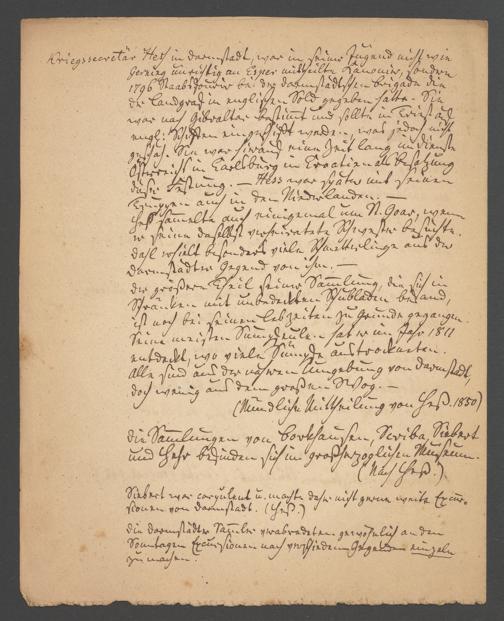 Kriegssecretär Hess in Darmstadt, war in seiner Jugend nicht wie
Gerning unrichtig an Esper mittheilte Kanonier, sondern
1796 Staabsfourier bei der darmstädtschen Brigade die
der Landgraf in englischen Sold gegeben hatte. Sie
war nach Gibralter bestimmt und sollte in Triest auf
engl. Schiffen eingeschifft werden, was jedoch nicht
geschah. Sie war hierauf eine Zeit lang im Dienste
Österreichs in Carlsburg in Croatien als Besatzung
dieser Festung. — Hess war später mit seinen
Truppen auch in den Niederlanden. —
Heß sammelte auch einigemal um St. Goar, wenn
er seine daselbst verheiratete Schwester besuchte.
Dahl erhielt besonders viele Schmetterlinge aus der
Darmstädter Gegend von ihm. —
Der größere Theil seiner Sammlung, die sich in
Schränken mit unbedeckten Schubladen befand,
ist noch bei seinen Lebzeiten zu Grunde gegangen.
Seine meisten hat er im Jahr 1811
entdeckt, wo viele Sümpfe austrockneten.
Alle sind aus der nahen Umgebung von Darmstadt,
doch wenig aus dem großen Woog. —
(Mündliche Mittheilung von Heß. 1850)
Die Sammlungen von Borkhausen, Scriba, Siebert
und Hehr befinden sich im großherzoglichen Museum.
(Nach Heß.)
Siebert war corpulent u. machte daher nicht gerne weite Excur-
sionen von Darmstadt. (Heß.)
Die Darmstädter Samler verabredeten gewöhnlich an den
Sonntagen Excursionen nach verschiedenen Gegenden einzeln
zu machen.